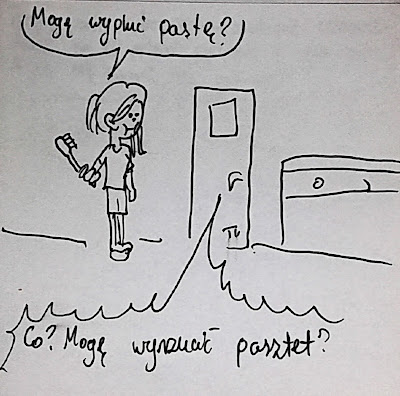 Mogę wypluć pastę?
Co? Mogę wyruchać pasztet?